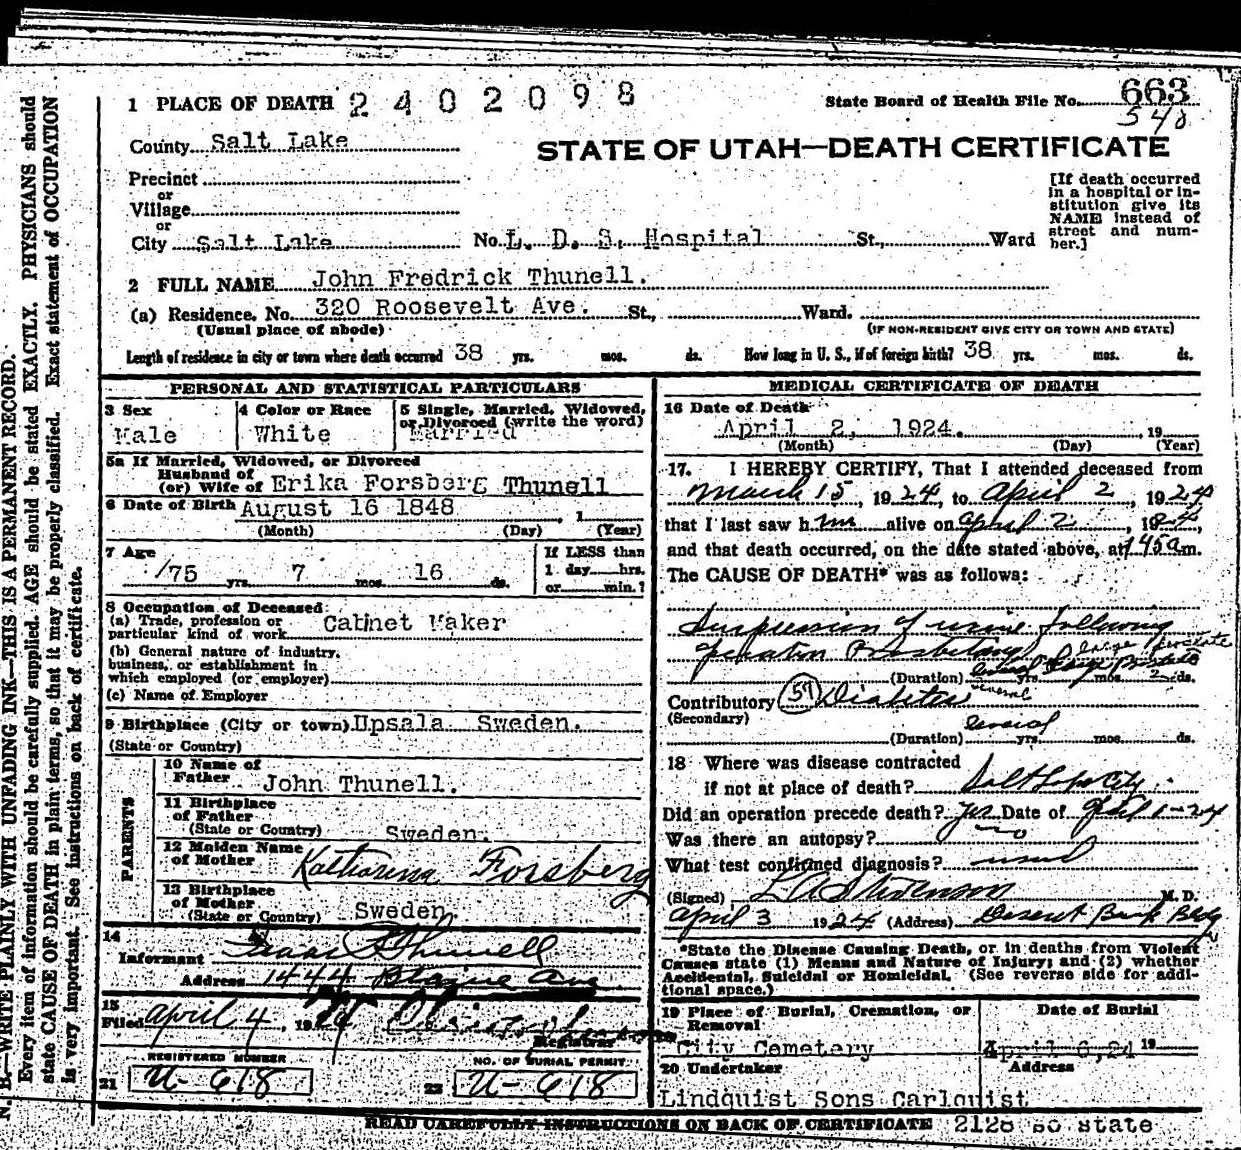 N. B.—WRITE PLAINLY WITH UNFADING INK—THIS IS A PERMANENT RECORD.
Every item of information should be carefully supplied. AGE should be stated EXACTLY. PHYSICIANS should
state CAUSE OF DEATH in plain terms, so that it may be properly classified. Exact statement of OCCUPATION
is very important. See instructions on back of certificate.
1 PLACE OF DEATH 2402098
State Board of Health File No. 663
540
County Salt Lake
STATE OF UTAH—DEATH CERTIFICATE
Precinct
or
Village
or
City Salt Lake No. L. D. S. Hospital St., Ward
[If death occurred
in a hospital or in-
stitution give its
NAME instead of
street and num-
ber.]
2 FULL NAME John Fredrick Thunell.
(a) Residence. No. 320 Roosevelt Ave. St., Ward.
(Usual place of abode) (IF NON-RESIDENT GIVE CITY OR TOWN AND STATE)
Length of residence in city or town where death occurred 38 yrs. mos. ds. How long in U. S., if of foreign birth? 38 yrs. mos. ds.
PERSONAL AND STATISTICAL PARTICULARS
3 Sex
Male
4 Color or Race
White
5 Single, Married, Widowed,
or Divorced (write the word)
Married
5a If Married, Widowed, or Divorced
Husband of
(or) Wife of Erika Forsberg Thunell
6 Date of Birth August 16 1848, 1
(Month) (Day) (Year)
7 Age
75 yrs. 7 mos. 16 ds.
If LESS than
1 day hrs.
or min.?
8 Occupation of Deceased
(a) Trade, profession or
particular kind of work Cabinet Maker
(b) General nature of industry,
business, or establishment in
which employed (or employer)
(c) Name of Employer
9 Birthplace (City or town) Upsala Sweden.
(State or Country)
PARENTS
10 Name of
Father John Thunell.
11 Birthplace
of Father
(State or Country) Sweden.
12 Maiden Name
of Mother Katharina Forsberg
13 Birthplace
of Mother
(State or Country) Sweden
14
Informant Isaac Thunell
Address 1444 Blaine Ave
15
Filed April 4, 1924
Registrar
REGISTERED NUMBER
21 U-618
NO. OF BURIAL PERMIT
22 U-618
MEDICAL CERTIFICATE OF DEATH
16 Date of Death
April 2, 1924. , 19
(Month) (Day) (Year)
17. I HEREBY CERTIFY, That I attended deceased from
March 15, 1924, to April 2, 1924
that I last saw him alive on April 2, 1924,
and that death occurred, on the date stated above, at 145 a m.
The CAUSE OF DEATH* was as follows:
Suppression of urine following
operation
large prostate
(Duration) yrs. mos. 2 ds.
Contributory 59 Diabetes
(Secondary) several
(Duration) several yrs. mos. ds.
18 Where was disease contracted
if not at place of death? Salt Lake City
Did an operation precede death? Yes Date of April 1-24
Was there an autopsy? no
What test confirmed diagnosis? usual
(Signed) L A Stevenson M. D.
April 3 1924 (Address) Deseret Bank Bldg
*State the Disease Causing Death, or in deaths from Violent
Causes state (1) Means and Nature of Injury; and (2) whether
Accidental, Suicidal or Homicidal. (See reverse side for addi-
tional space.)
19 Place of Burial, Cremation, or
Removal
City Cemetery
Date of Burial
April 6, 24 19
20 Undertaker
Lindquist Sons Carlquist
Address
2128 so state
READ CAREFULLY INSTRUCTIONS ON BACK OF CERTIFICATE